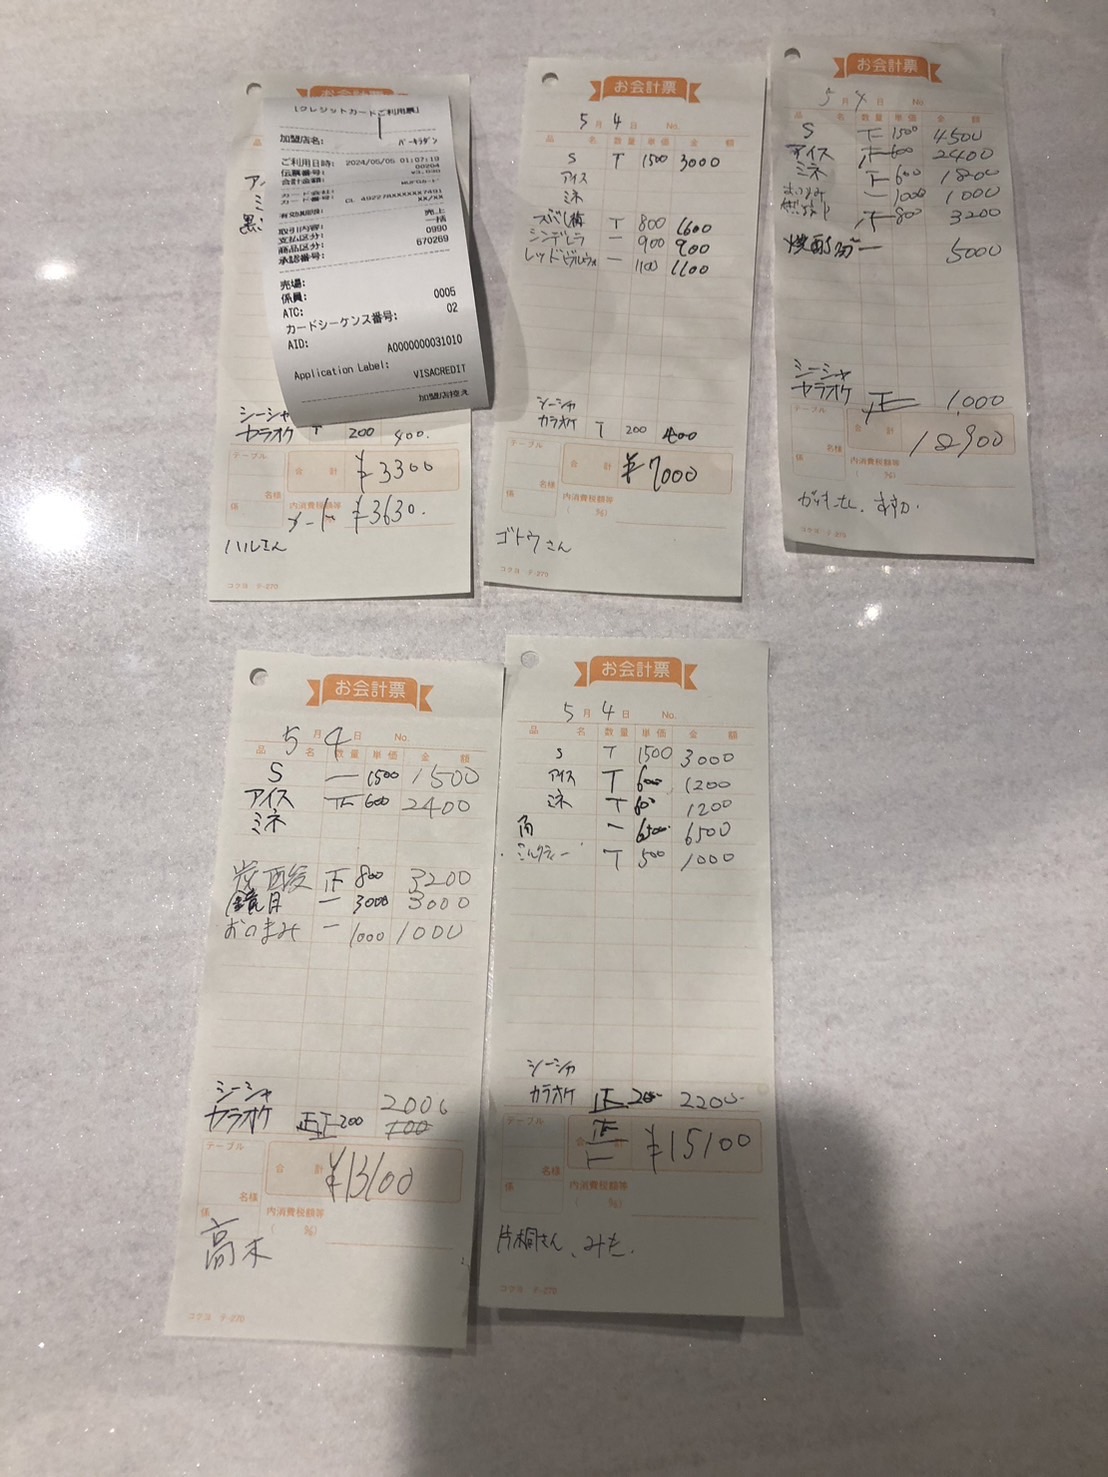 お会計票
[クレジットカードご利用票]
加盟店名:
バーキラデン
ご利用日時: 2024/05/05 01:07:19
伝票番号: 00204
合計金額: ¥3,630
カード会社:
カード番号: CL 492278XXXXXX7491
有効期限: XX/XX
取引内容: 売上
支払区分: 一括
商品区分: 0990
承認番号: 670269
売場:
係員:
ATC: 0005
カードシーケンス番号: 02
AID: A0000000031010
Application Label: VISACREDIT
加盟店控え
シーシャ
カラオケ T 200 400.
テーブル
合計 ¥3300
名様
係
内消費税額等
カード ¥3630.
ハルさん
コクヨ テ-270
お会計票
5月4日 No.
品名 数量 単価 金額
S T 1500 3000
アイス
ミネ
T 800 1600
シンデレラ 一 900 900
一 1100 1100
シーシャ
カラオケ T 200 400
テーブル
合計 ¥7000
名様
係
内消費税額等
( %)
ゴトウさん
コクヨ テ-270
お会計票
5月4日 No.
品名 数量 単価 金額
S 下 1500 4500
アイス 600 2400
ミネ 下 600 1800
おつまみ 一 1000 1000
800 3200
一 5000
シーシャ
カラオケ 正 1,000
テーブル
合計 18900
名様
係
内消費税額等
( %)
コクヨ テ-270
お会計票
5月4日 No.
品名 数量 単価 金額
S 一 1500 1500
アイス 600 2400
ミネ
800 3200
鏡月 一 3000 3000
おつまみ 一 1000 1000
シーシャ
2000
カラオケ 正正 200
テーブル
合計 ¥13100
名様
係
内消費税額等
( %)
高木
コクヨ テ-270
お会計票
5月4日 No.
品名 数量 単価 金額
S T 1500 3000
アイス T 600 1200
ミネ T 600 1200
角 一 6500 6500
T 500 1000
シーシャ
カラオケ 正 200 2200
正
一
テーブル
合計 ¥15100
名様
係
内消費税額等
( %)
片桐さん、みた.
コクヨ テ-270